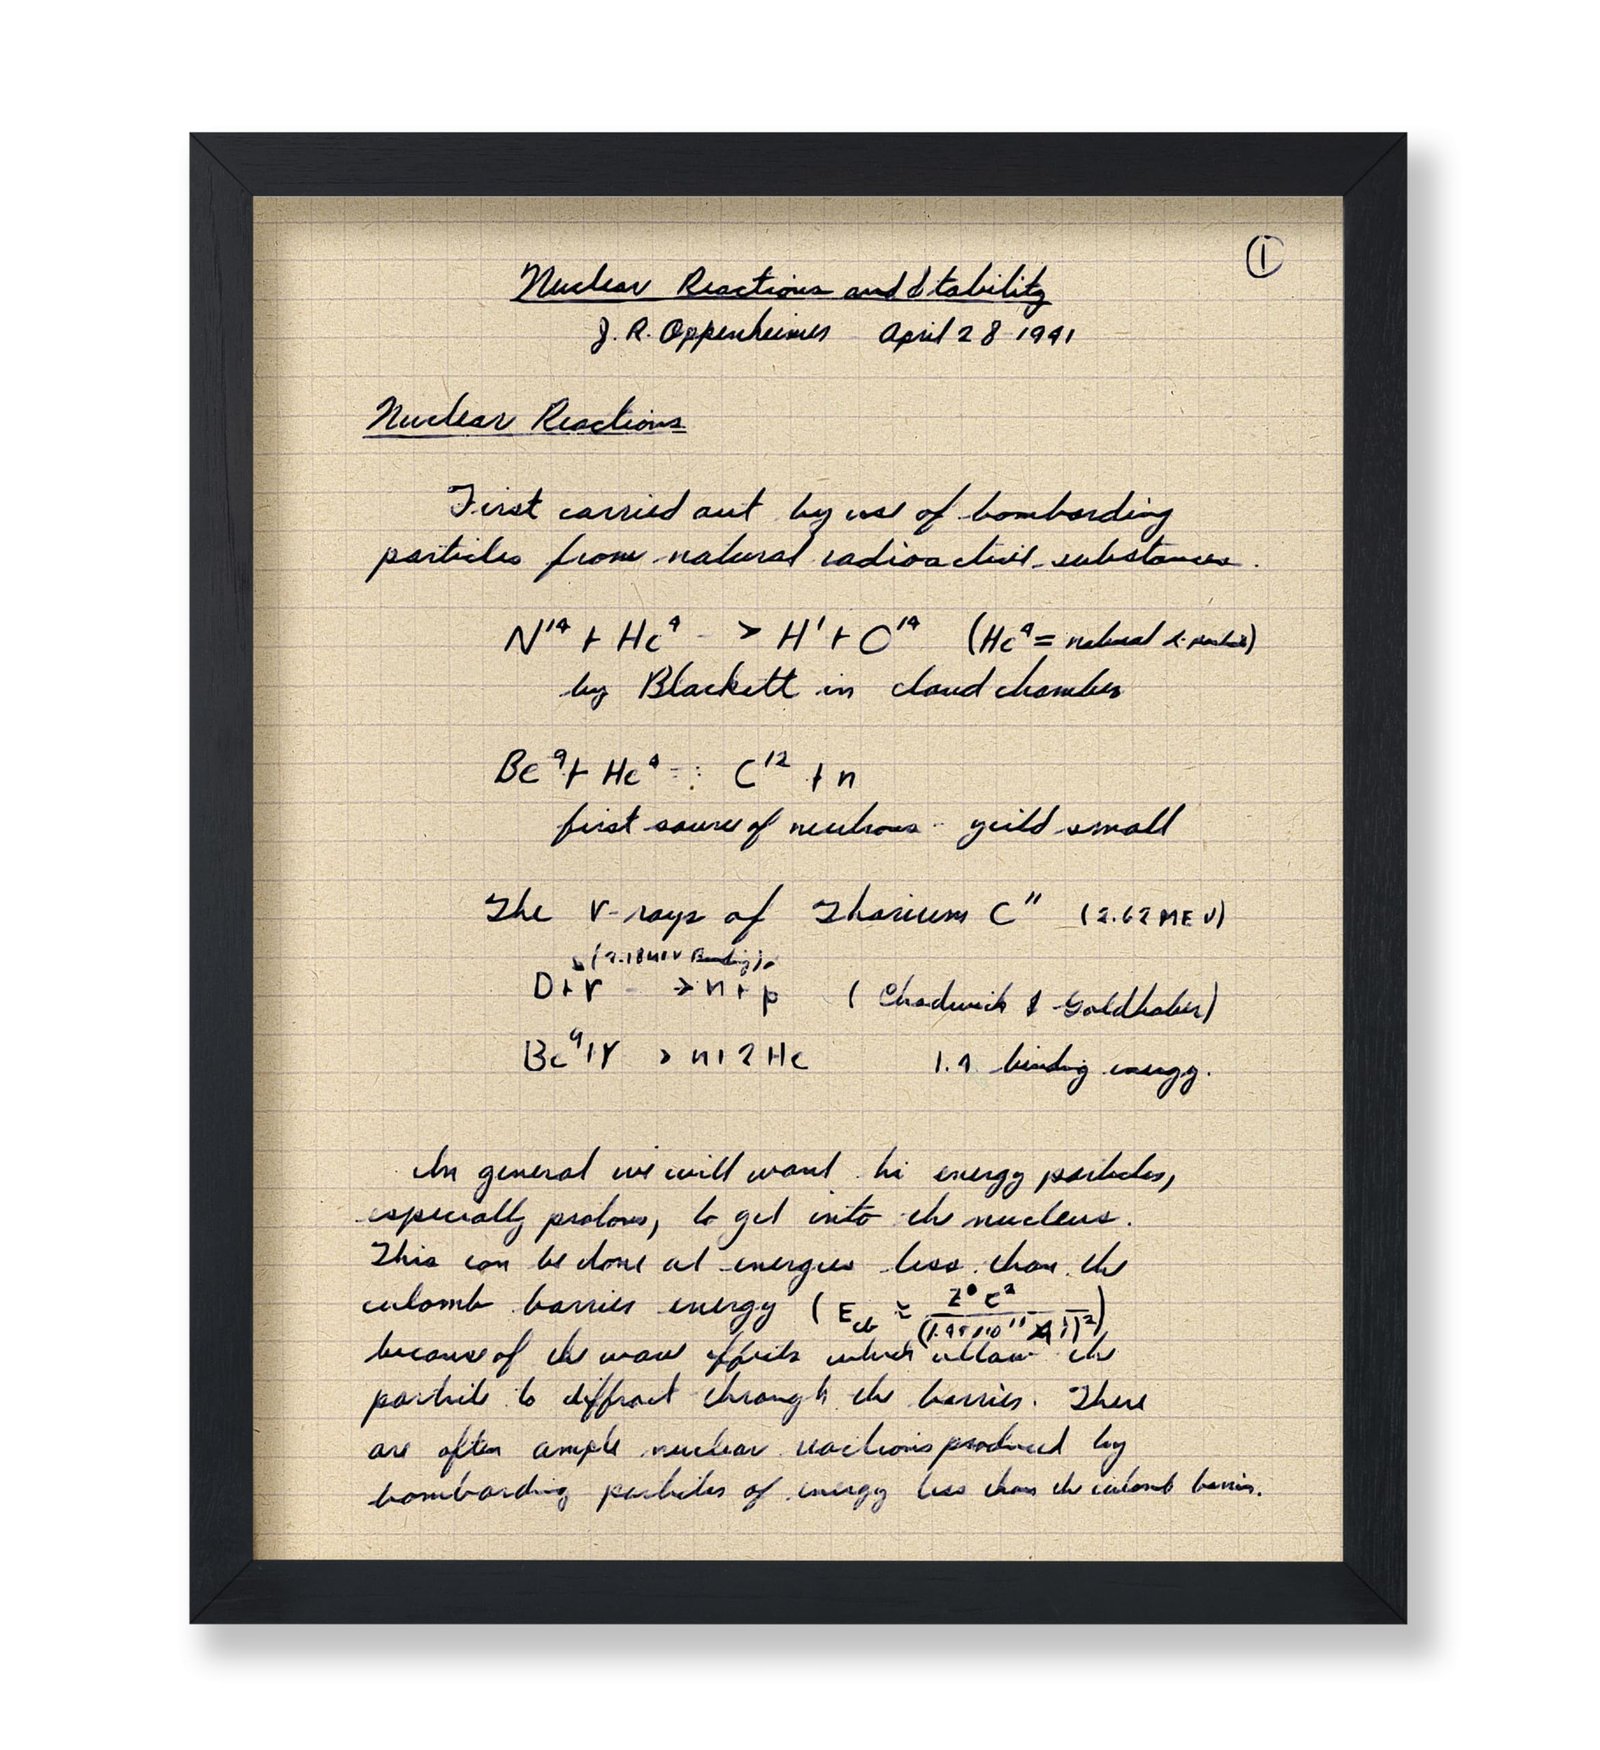 ①
Nuclear Reactions and Stability
J. R. Oppenheimer April 28 1941
Nuclear Reactions
First carried out by use of bombarding
particles from natural radioactive substances.
N¹⁴ + He⁴ -> H¹ + O¹⁴ (He⁴ = natural α-particle)
by Blackett in cloud chamber
Be⁹ + He⁴ C¹² + n
first source of neutrons - yield small
The γ-rays of Thorium C" (2.62 MEV)
(2.18 MEV Binding)
D + γ -> n + p (Chadwick & Goldhaber)
Be⁹ + γ > n + 2 He binding energy.
In general we will want hi energy particles,
especially protons, to get into the nucleus.
This can be done at energies less than the
culomb barrier energy (E ≈
because of the wave effects which allow the
particle to diffract through the barrier. There
are often ample nuclear reactions produced by
bombarding particles of energy less than the culomb barrier.